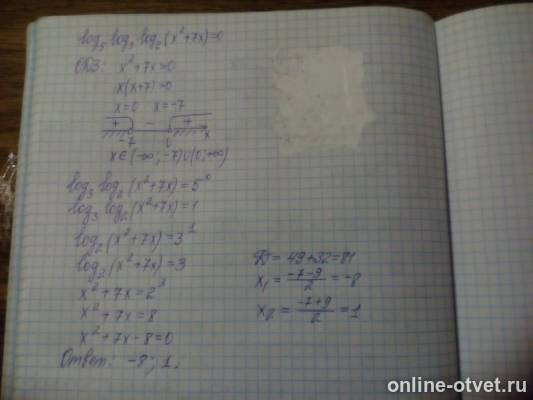 log₅ log₃ log₂(x²+7x)=0
ОДЗ: x²+7x>0
x(x+7)>0
x=0 x=-7
+ - +
-7 0 x
x∈(-∞;-7)∪(0;+∞)
log₃ log₂(x²+7x)=5⁰
log₃ log₂(x²+7x)=1
log₂(x²+7x)=3¹
log₂(x²+7x)=3
x²+7x=2³
x²+7x=8
x²+7x-8=0
Ответ: -8; 1.
D=49+32=81
x₁=(-7-9)/2=-8
x₂=(-7+9)/2=1
online-otvet.ru